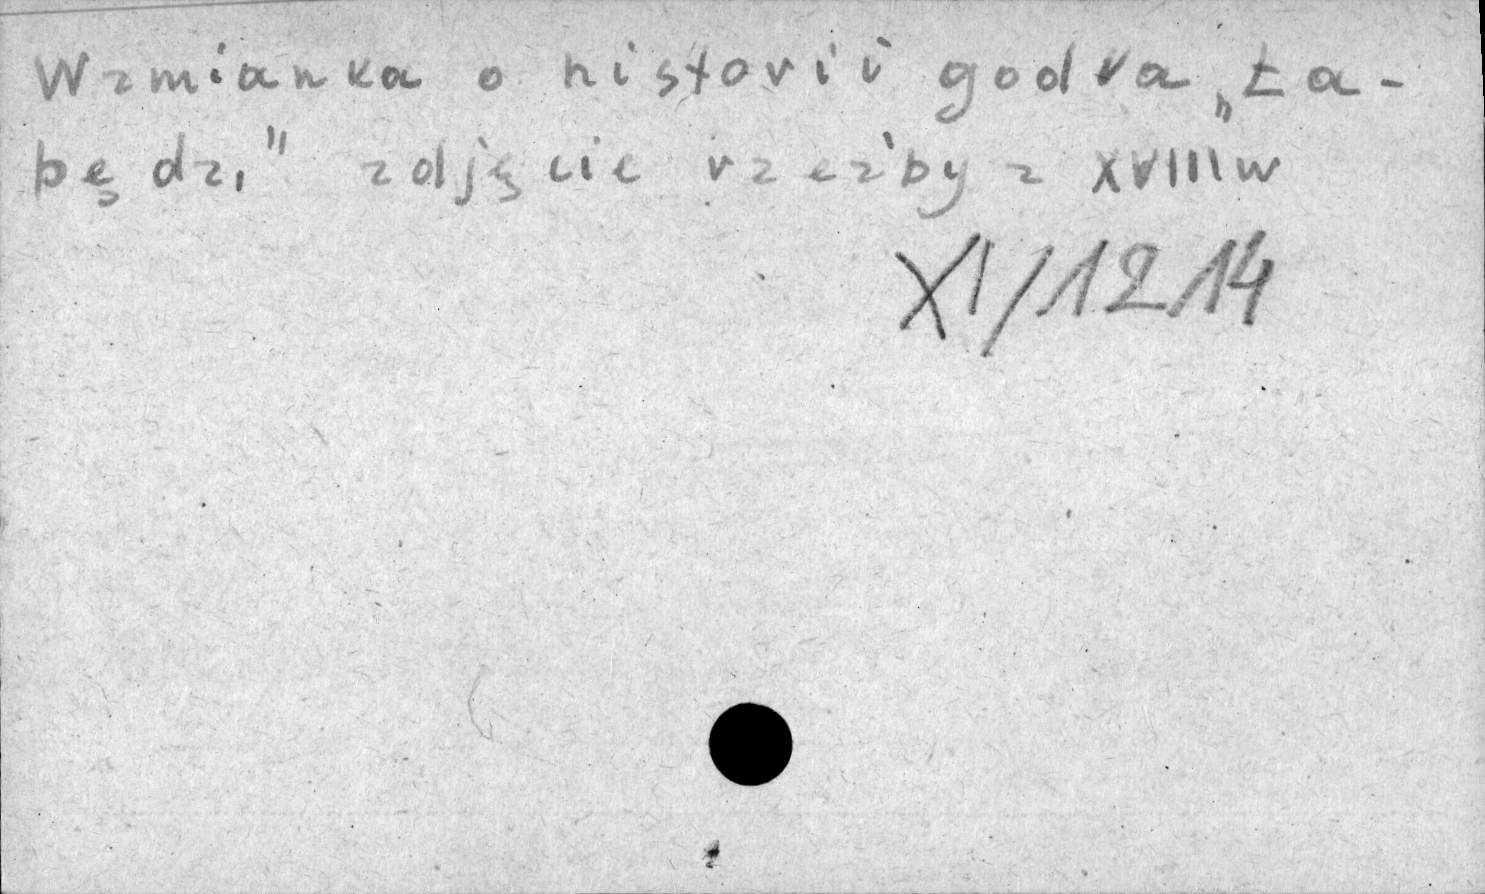 Wzmianka o historii godła „Ła-
będzi" zdjęcie rzeźby z XVIIIw
XI/1214